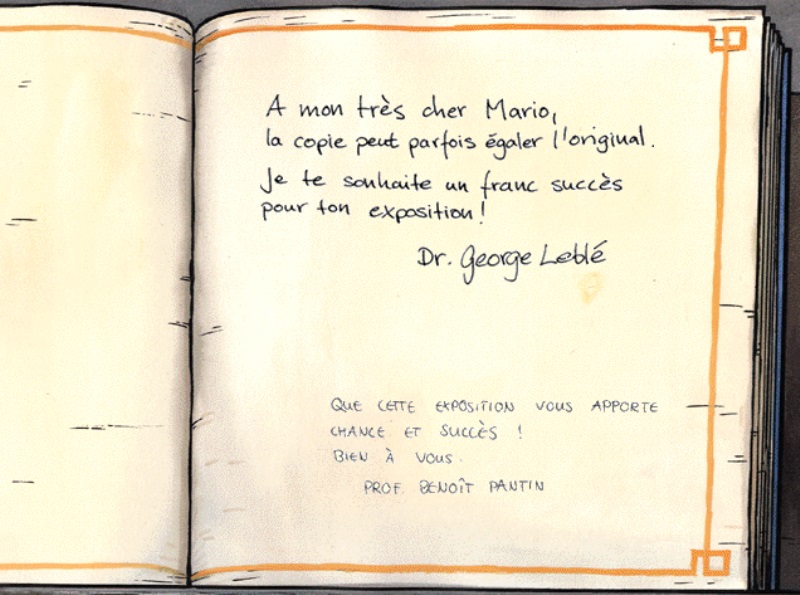 A mon très cher Mario,
la copie peut parfois égaler l'original.
Je te souhaite un franc succès
pour ton exposition!
Dr. George Leblé
QUE CETTE EXPOSITION VOUS APPORTE
CHANCE ET SUCCÈS !
BIEN À VOUS.
PROF. BENOÎT PANTIN